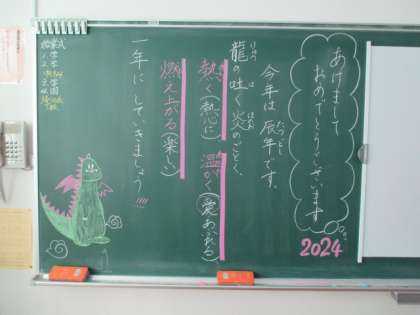 あけまして
おめでとうございます
2024
今年は辰年です。
たつどし
龍の吐く炎のごとく、
りゅう
は
ほのお
熱く(熱心に) 温かく(愛あふれる)
燃え上がる(楽しい)
一年にしていきましょう!!!
始業式